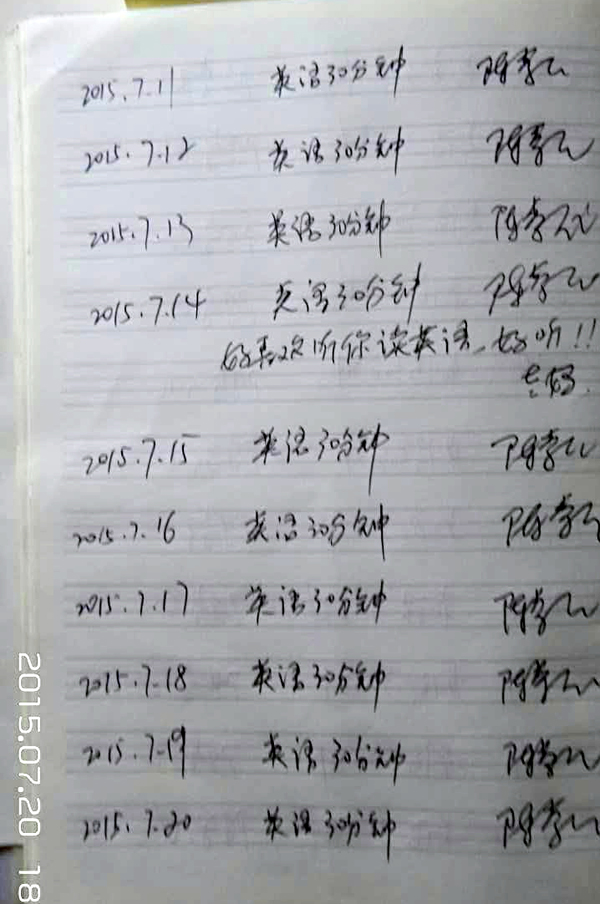 2015.7.11 英语30分钟
2015.7.12 英语30分钟
2015.7.13 英语30分钟
2015.7.14 英语30分钟
好喜欢听你读英语、好听!!
2015.7.15 英语30分钟
2015.7.16 英语30分钟
2015.7.17 英语30分钟
2015.7.18 英语30分钟
2015.7.19 英语30分钟
2015.7.20 英语30分钟
2015.07.20 18